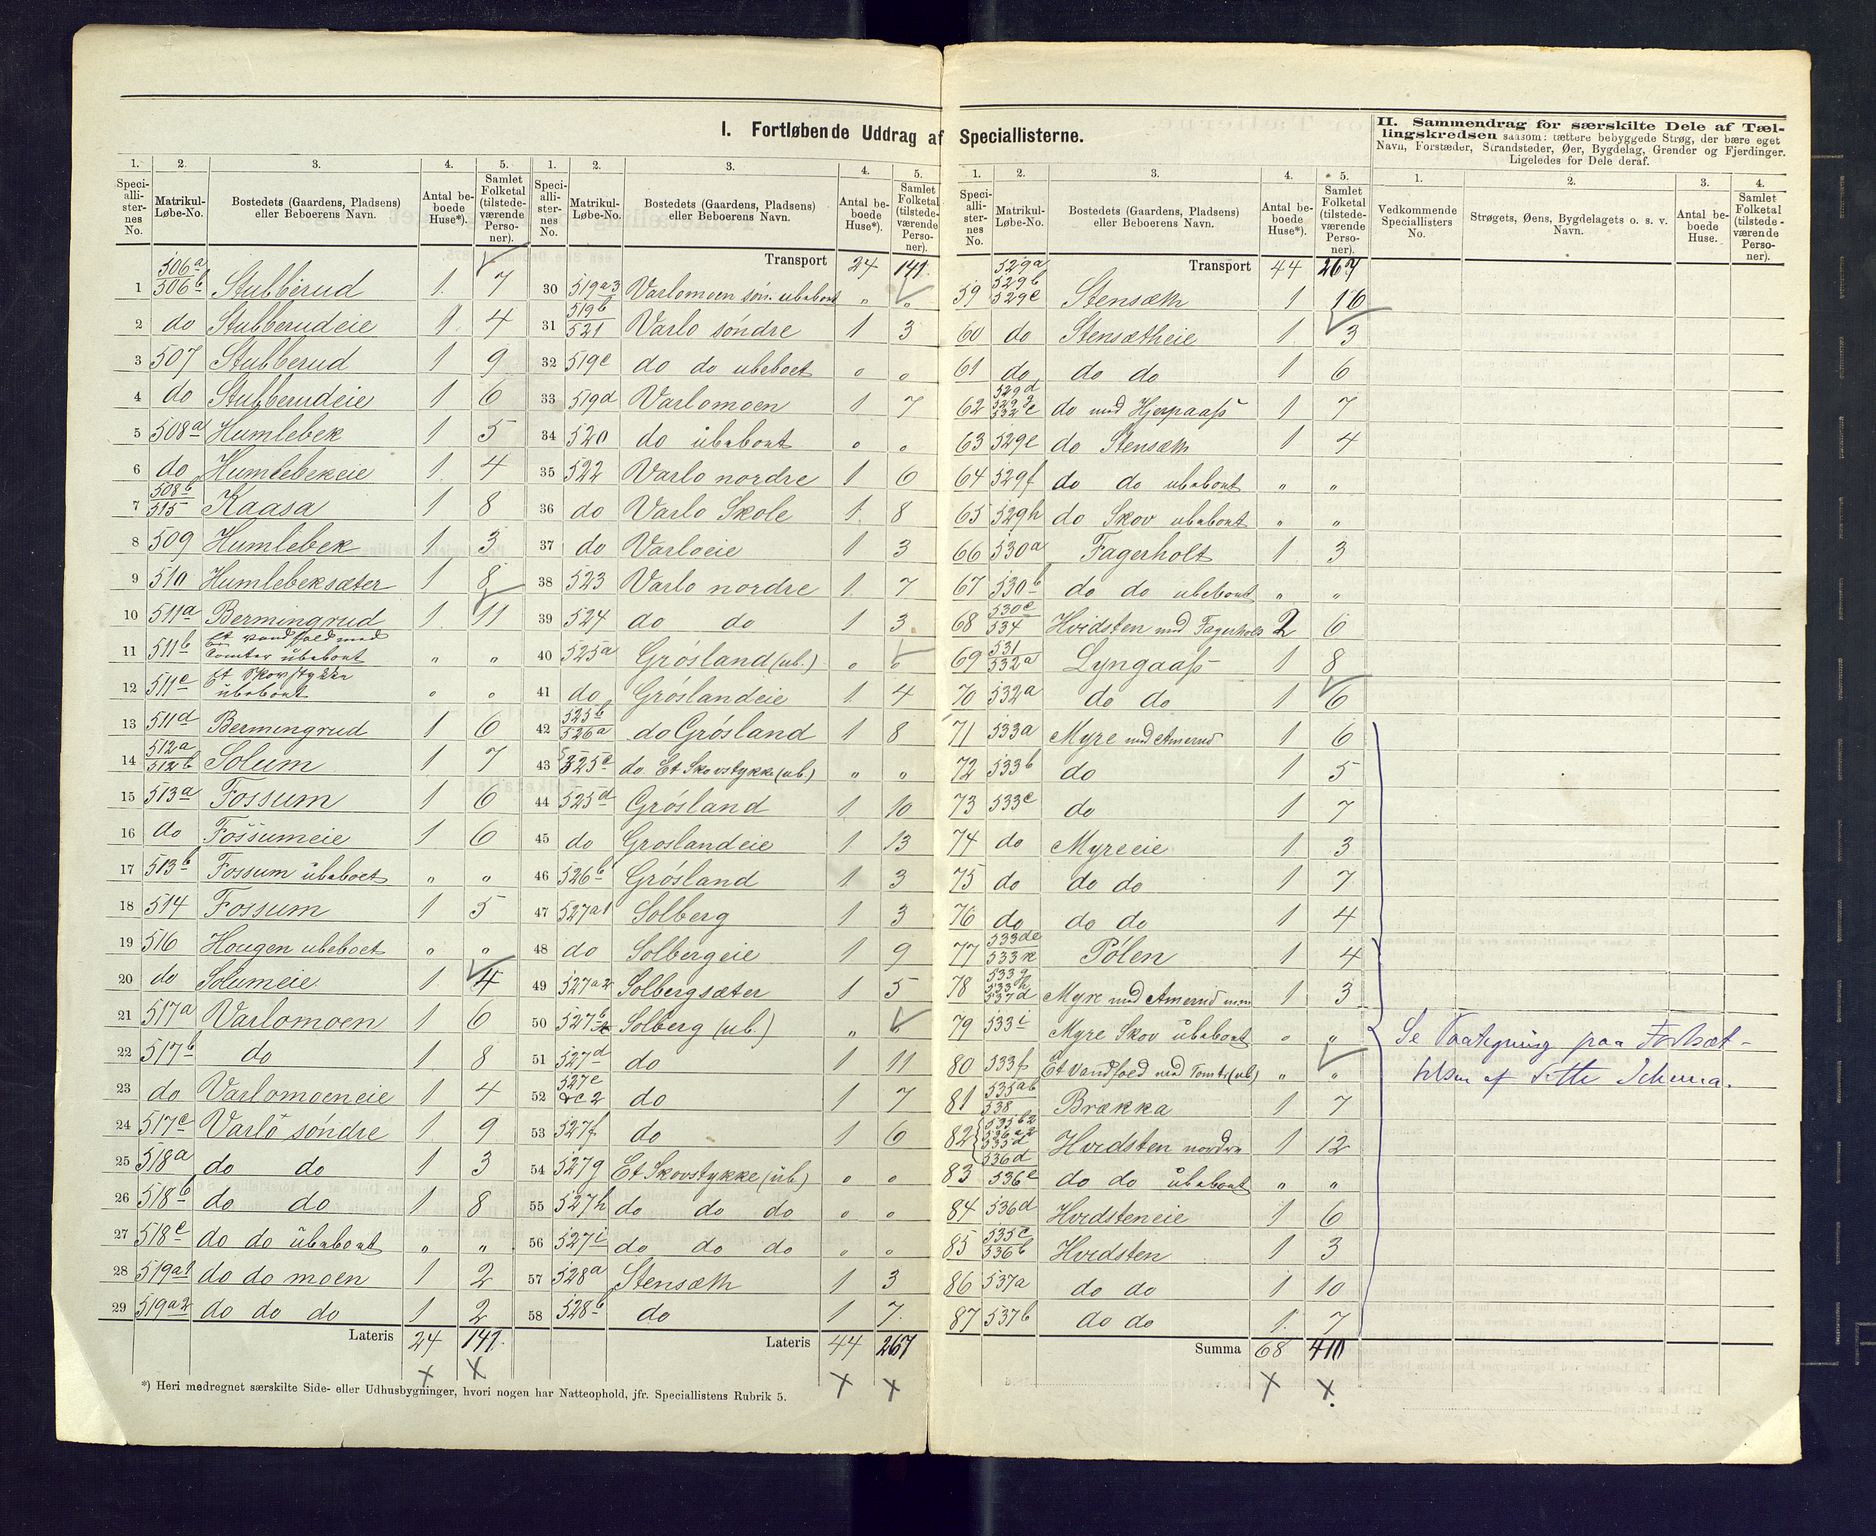 I. Fortløbende Uddrag af Speciallisterne.
II. Sammendrag for særskilte Dele af Tællingskredsen saasom: tættere bebyggede Strøg, der bære eget
Navn, Forstæder, Strandsteder, Øer, Bygdelag, Grender og Fjerdinger.
Ligeledes for Dele deraf.
1. 2. 3. 4. 5.
Speciallisternes No. Matrikul-Løbe-No. Bostedets (Gaardens, Pladsens) eller Beboerens Navn. Antal beboede Huse*). Samlet Folketal (tilstedeværende Personer).
1 506a 506b Stubberud 1 7
2 do Stubberudeie 1 4
3 507 Stubberud 1 9
4 do Stubberudeie 1 6
5 508a Humlebek 1 5
6 do Humlebekeie 1 4
7 508b 515 Kaasa 1 8
8 509 Humlebek 1 3
9 510 Humlebeksæter 1 8
10 511a Bermingrud 1 11
11 511b Et vandfald med Tomter ubeboet " "
12 511c Et Skovstykke ubeboet " "
13 511d Bermingrud 1 6
14 512a 512b Solum 1 7
15 513a Fossum 1 6
16 do Fossumeie 1 6
17 513b Fossum ubeboet " "
18 514 Fossum 1 5
19 516 Hougen ubeboet " "
20 do Solumeie 1 4
21 517a Varlomoen 1 6
22 517b do 1 8
23 do Varlomoeneie 1 4
24 517c Varlo søndre 1 9
25 518a do do 1 3
26 518b do do 1 8
27 518c do do ubeboet " "
28 519a1 do do moen 1 2
29 519a2 do do do 1 2
Lateris 24 141
1. 2. 3. 4. 5.
Speciallisternes No. Matrikul-Løbe-No. Bostedets (Gaardens, Pladsens) eller Beboerens Navn. Antal beboede Huse*). Samlet Folketal (tilstedeværende Personer).
Transport 24 141
30 519a3 Varlomoen søn. ubeboet " "
31 519b 521 Varlo søndre 1 3
32 519c do do ubeboet " "
33 519d Varlomoen 1 7
34 520 do ubeboet " "
35 522 Varlo nordre 1 6
36 do Varlo Skole 1 8
37 do Varloeie 1 3
38 523 Varlo nordre 1 7
39 524 do do 1 3
40 525a Grósland (ub.) " "
41 do Gróslandeie 1 4
42 525b 526a do Grósland 1 8
43 525c do Et Skovstykke (ub.) " "
44 525d Grósland 1 10
45 do Groslandeie 1 13
46 526b Grósland 1 3
47 527a1 Solberg 1 3
48 do Solbergeie 1 9
49 527a2 Solbergsæter 1 5
50 527b Solberg (ub.) " "
51 527d do 1 11
52 527e do 1 7
53 527f do 1 6
54 527g Et Skovstykke (ub.) " "
55 527h do do do " "
56 527i do do do " "
57 528a Stensæth 1 3
58 528b do 1 7
Lateris 44 267
1. 2. 3. 4. 5.
Speciallisternes No. Matrikul-Løbe-No. Bostedets (Gaardens, Pladsens) eller Beboerens Navn. Antal beboede Huse*). Samlet Folketal (tilstedeværende Personer).
Transport 44 267
59 529a 529b 529c Stensæth 1 16
60 do Stensætheie 1 3
61 do do do 1 6
62 529d 529g 532c do med Hjerpaass 1 7
63 529e do Stensæth 1 4
64 529f do do ubeboet " "
65 529h do Skov ubeboet " "
66 530a Fagerholt 1 3
67 530b do do ubeboet " "
68 530c 534 Hvidsten med Fagerholt 2 6
69 531 532a Lyngaass 1 8
70 532a do do 1 6
71 533a Myre med Amerud 1 6
72 533b do 1 5
73 533c do 1 7
74 do Myreeie 1 3
75 do do do 1 7
76 do do do 1 4
77 533de 533k Pólen 1 4
78 533g 533h 537d Myre med Amerud 1 3
79 533i Myre Skov ubeboet " "
80 533f Et Vandfald med Tomt (ub) " "
81 535ab 538 Brækka 1 7
82 535b2 536a2 535d 536d Hvidsten nordre 1 12
83 536c do do ubeboet " "
84 536d Hvidsteneie 1 6
85 535c 536b Hvidsten 1 3
86 537a do do 1 10
87 537b do do 1 7
Summa 68 410
1. 2. 3. 4.
Vedkommende Speciallisters No. Strøgets, Øens, Bygdelagets o. s. v. Navn. Antal beboede Huse. Samlet Folketal (tilstedeværende Personer).
Se Paategning paa Fortsæt-
telsen af dette Schema.
*) Heri medregnet særskilte Side- eller Udhusbygninger, hvori nogen har Natteophold, jfr. Speciallistens Rubrik 5.